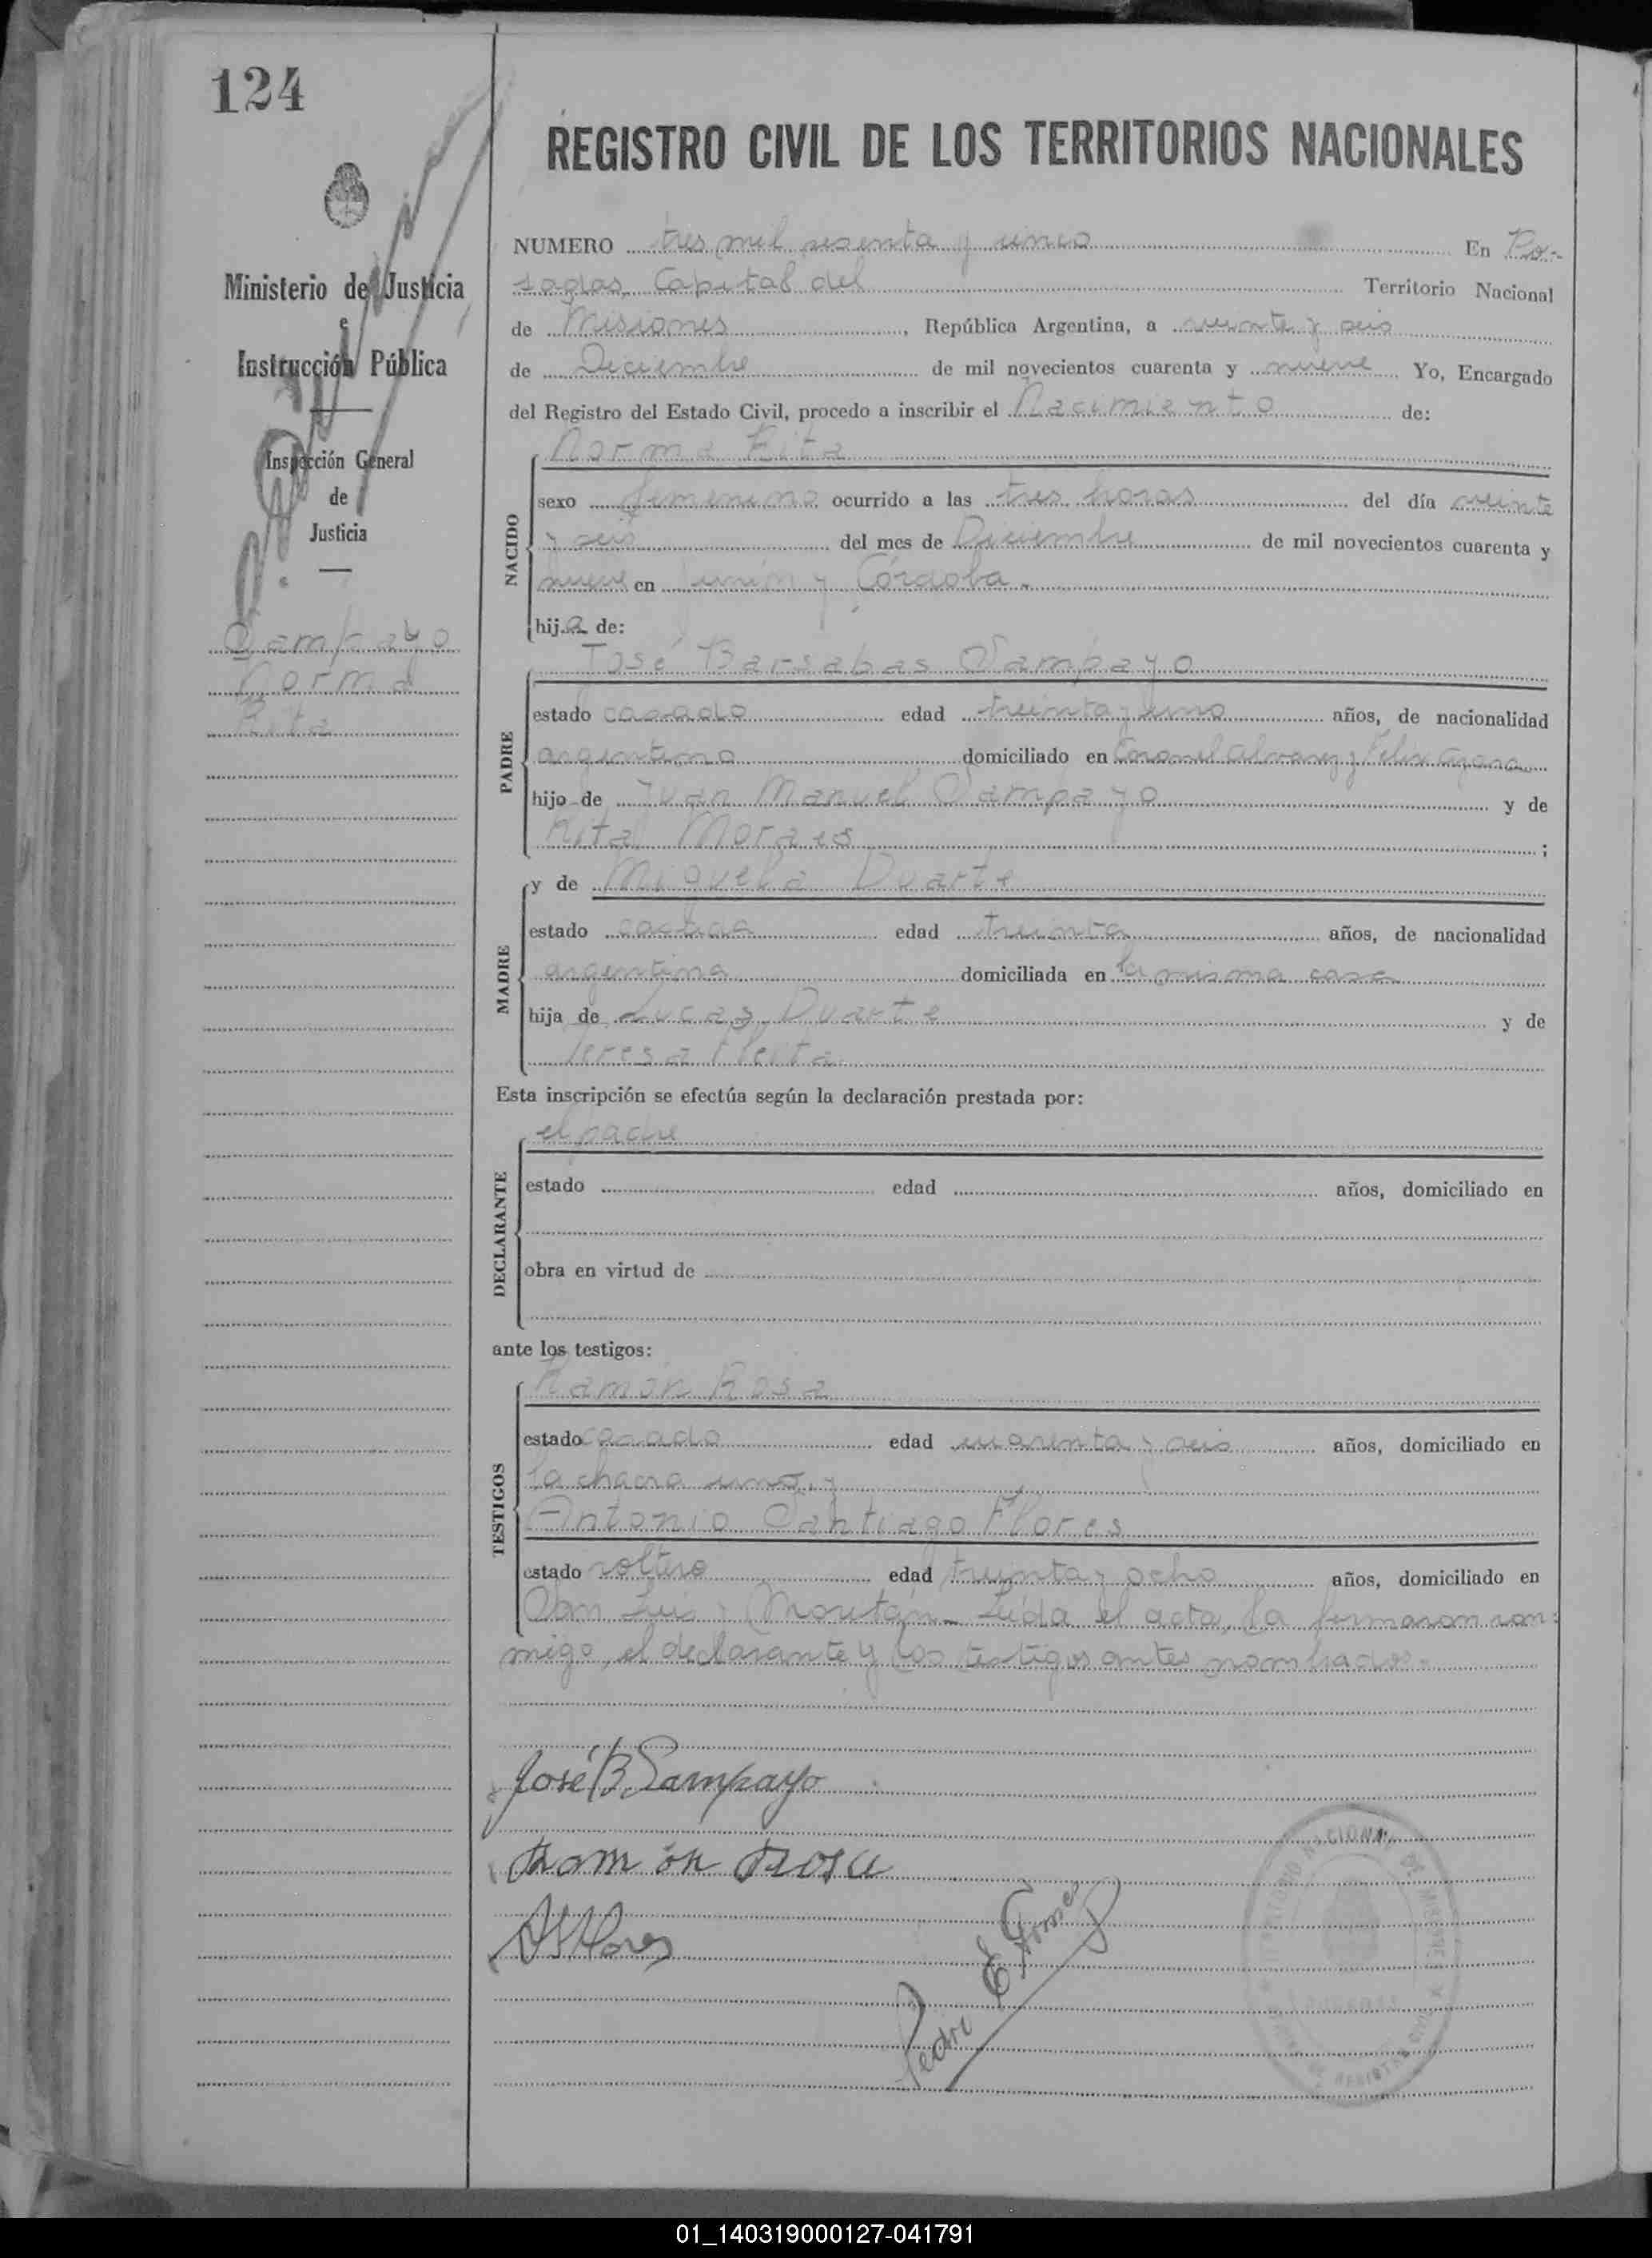 124
REGISTRO CIVIL DE LOS TERRITORIOS NACIONALES
Ministerio de Justicia
e
Instrucción Pública
Inspección General
de
Justicia
Sampayo
Norma
Rita
NUMERO tres mil sesenta y cinco En Po-
sadas Capital del Territorio Nacional
de Misiones, República Argentina, a veinte y seis
de Diciembre de mil novecientos cuarenta y nueve Yo, Encargado
del Registro del Estado Civil, procedo a inscribir el Nacimiento de:
Norma Rita
NACIDO
sexo femenino ocurrido a las tres horas del día veinte
y seis del mes de Diciembre de mil novecientos cuarenta y
nueve en Junín y Córdoba.
hija de:
José Barsabas Sampayo
PADRE
estado casado edad treinta y uno años, de nacionalidad
argentino domiciliado en Coronel Alvarez y Felix Azara
hijo de Juan Manuel Sampayo y de
Rita Moraes ;
y de Miguela Duarte
MADRE
estado casada edad treinta años, de nacionalidad
argentina domiciliada en la misma casa
hija de Lucas Duarte y de
Teresa Fleita
Esta inscripción se efectúa según la declaración prestada por:
el padre
DECLARANTE
estado edad años, domiciliado en
obra en virtud de
ante los testigos:
Ramón Rosa
TESTIGOS
estado casado edad cuarenta y seis años, domiciliado en
la chacra uno, y
Antonio Santiago Flores
estado soltero edad treinta y ocho años, domiciliado en
San Luis y Moritán - Leída el acta, la firmaron con-
migo, el declarante y los testigos antes nombrados.-
José B. Sampayo
Ramón Rosa
ASFlores
Pedro E Gomez
01_140319000127-041791